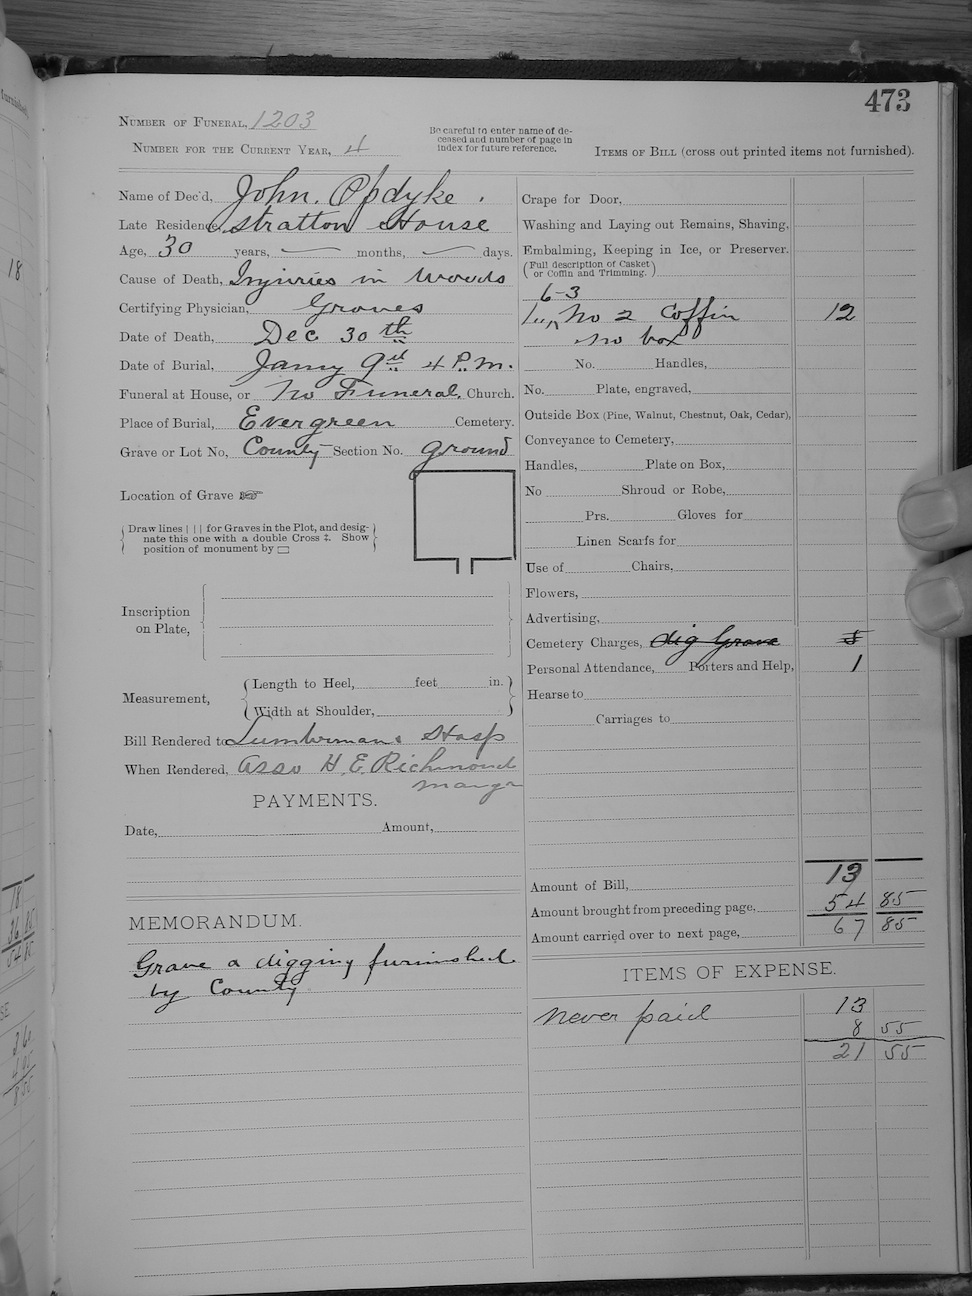 473
NUMBER OF FUNERAL, 1203
NUMBER FOR THE CURRENT YEAR, 4
Be careful to enter name of de-
ceased and number of page in
index for future reference.
ITEMS OF BILL (cross out printed items not furnished).
Name of Dec'd, John. Opdyke.
Late Residence, Stratton House
Age, 30 years, — months, — days.
Cause of Death, Injuries in woods
Certifying Physician, Groves
Date of Death, Dec 30 th
Date of Burial, Jany 9 4 P.M.
Funeral at House, or No Funeral, Church.
Place of Burial, Evergreen Cemetery.
Grave or Lot No, County Section No. ground
Location of Grave ☞
Draw lines | | | for Graves in the Plot, and desig-
nate this one with a double Cross ‡. Show
position of monument by ▭
Inscription
on Plate,
Measurement,
Length to Heel, feet in.
Width at Shoulder,
Bill Rendered to Lumbermans Hosp
When Rendered, Asso H. E. Richmond
mangr
PAYMENTS.
Date, Amount,
MEMORANDUM.
Grave a digging furnished
by County
Crape for Door,
Washing and Laying out Remains, Shaving,
Embalming, Keeping in Ice, or Preserver.
(Full description of Casket
or Coffin and Trimming.)
6-3
No 2 Coffin 12
no box
No. Handles,
No. Plate, engraved,
Outside Box (Pine, Walnut, Chestnut, Oak, Cedar),
Conveyance to Cemetery,
Handles, Plate on Box,
No Shroud or Robe,
Prs. Gloves for
Linen Scarfs for
Use of Chairs,
Flowers,
Advertising,
Cemetery Charges, dig Grave 5
Personal Attendance, Porters and Help, 1
Hearse to
Carriages to
Amount of Bill, 13
Amount brought from preceding page, 54 85
Amount carried over to next page, 67 85
ITEMS OF EXPENSE.
never paid 13
8 55
21 55
18
18
36 85
54 85
3 60
4 95
8 55